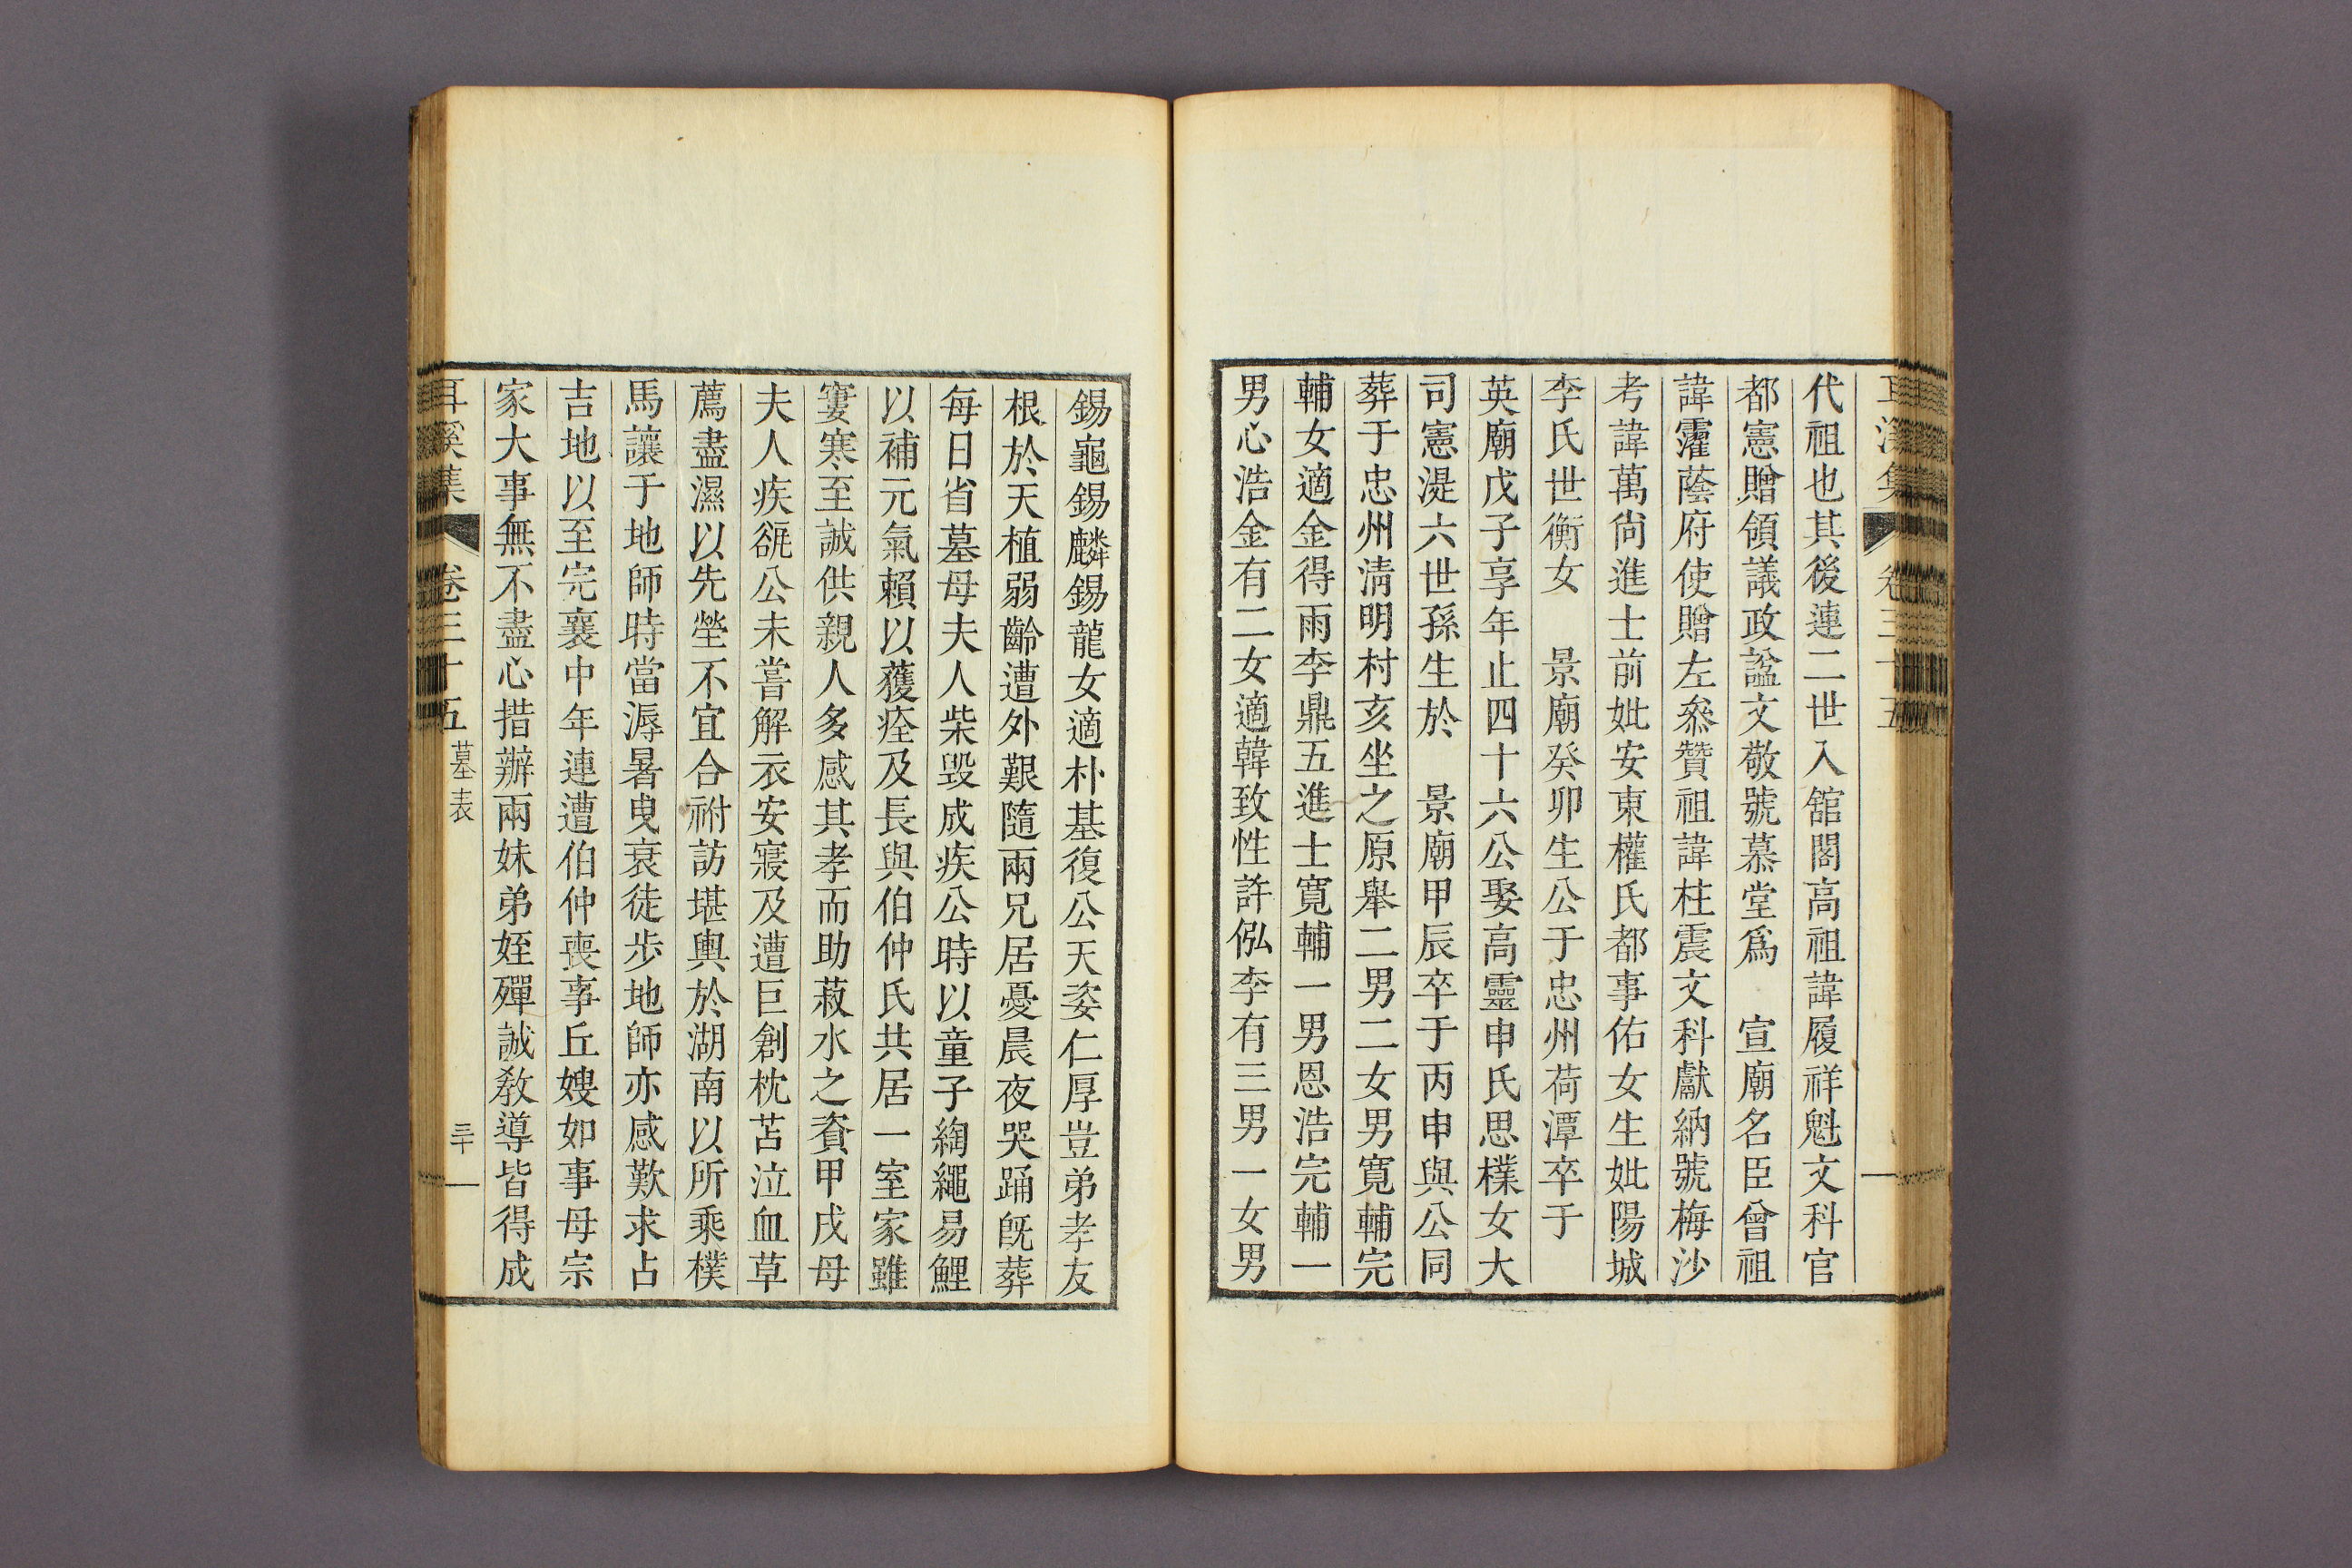 代祖也其後連二世入舘閣高祖諱履祥魁文科官
都憲贈領議政諡文敬號慕堂爲　宣廟名臣曾祖
諱霳蔭府使贈左叅贊祖諱柱震文科獻納號梅沙
考諱萬尙進士前妣安東權氏都事佑女生妣陽城
李氏世衡女　景廟癸卯生公于忠州荷潭卒于
英廟戊子享年止四十六公娶高靈申氏思檏女大
司憲湜六世孫生於　景廟甲辰卒于丙申與公同
葬于忠州淸明村亥坐之原舉二男二女男寬輔完
輔女適金得雨李鼎五進士寬輔一男恩浩完輔一
男心浩金有二女適韓致性許㳓李有三男一女男
錫龜錫麟錫龍女適朴基復公天姿仁厚豈弟孝友
根於天植弱齡遭外艱隨兩兄居憂晨夜哭踊旣葬
每日省墓母夫人柴毁成疾公時以童子綯繩易鯉
以補元氣賴以獲痊及長與伯仲氏共居一室家雖
窶寒至誠供親人多感其孝而助菽水之資甲戌母
夫人疾谻公未嘗解衣安寢及遭巨創枕苫泣血草
薦盡濕以先塋不宜合祔訪堪輿於湖南以所乘樸
馬讓于地師時當溽暑曳衰徒步地師亦感歎求占
吉地以至完襄中年連遭伯仲喪事丘嫂如事母宗
家大事無不盡心措辦兩妹弟姪殫誠敎導皆得成
耳溪集　卷三十五　墓表　三十